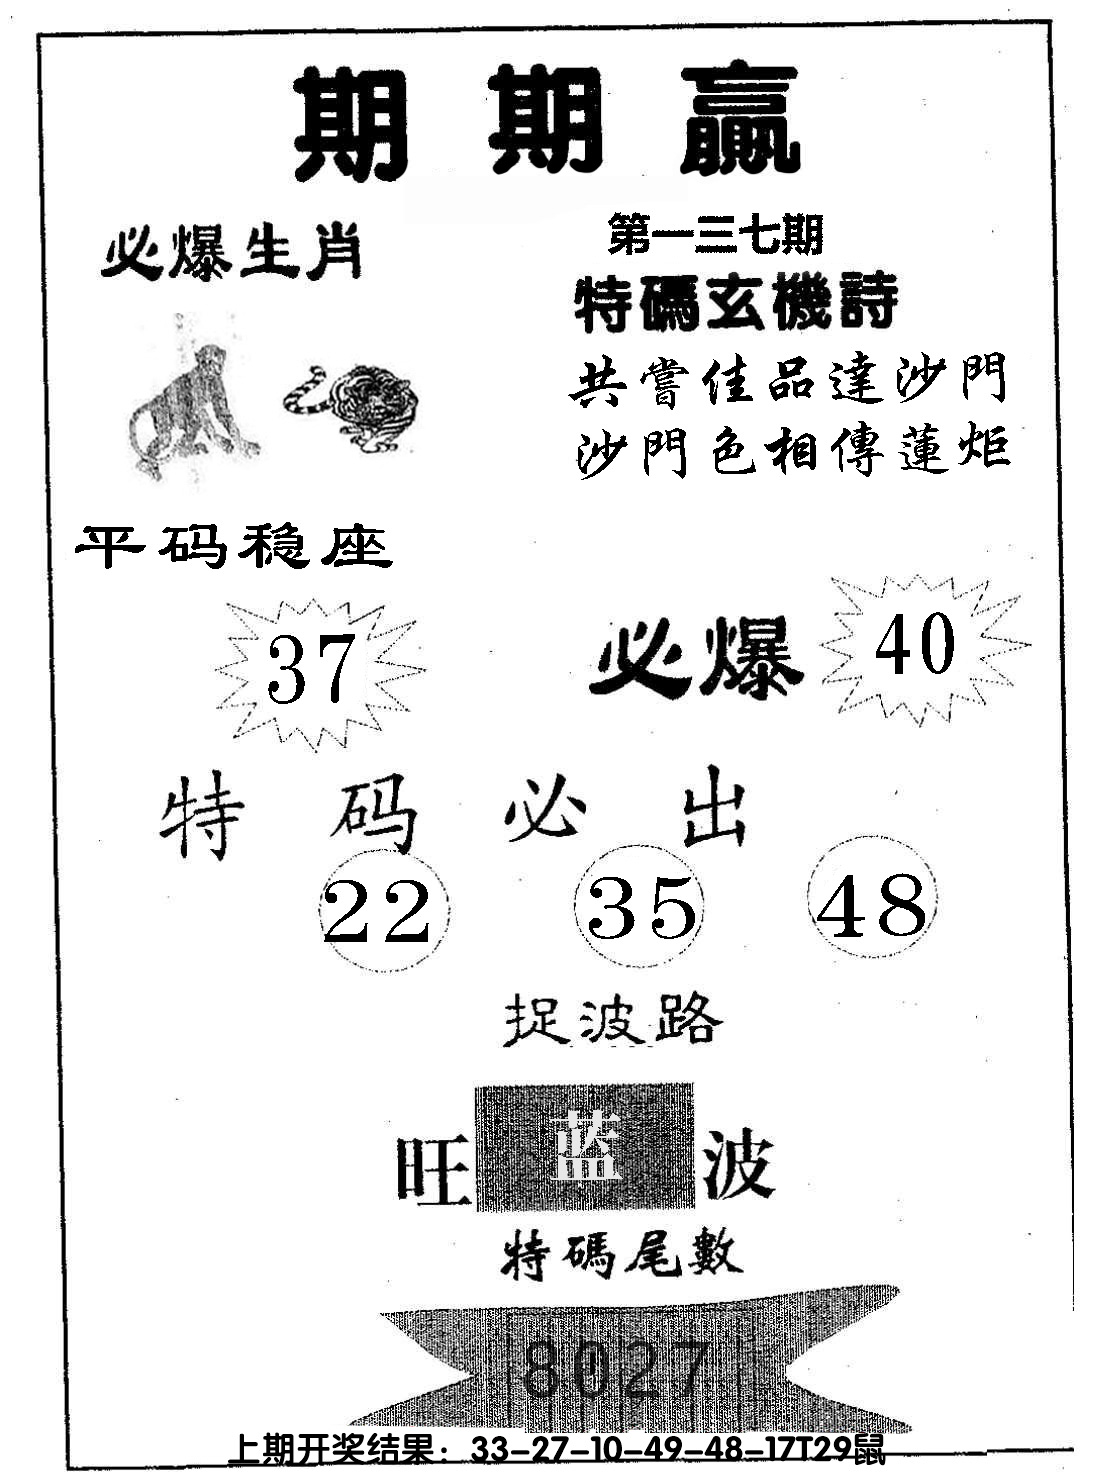 期期贏
必爆生肖
第一三七期
特碼玄機詩
共嘗佳品達沙門
沙門色相傳蓮炬
平码稳座
37
必爆 40
特码必出
22 35 48
捉波路
旺 蓝 波
特碼尾數
8027
上期开奖结果：33-27-10-49-48-17T29鼠